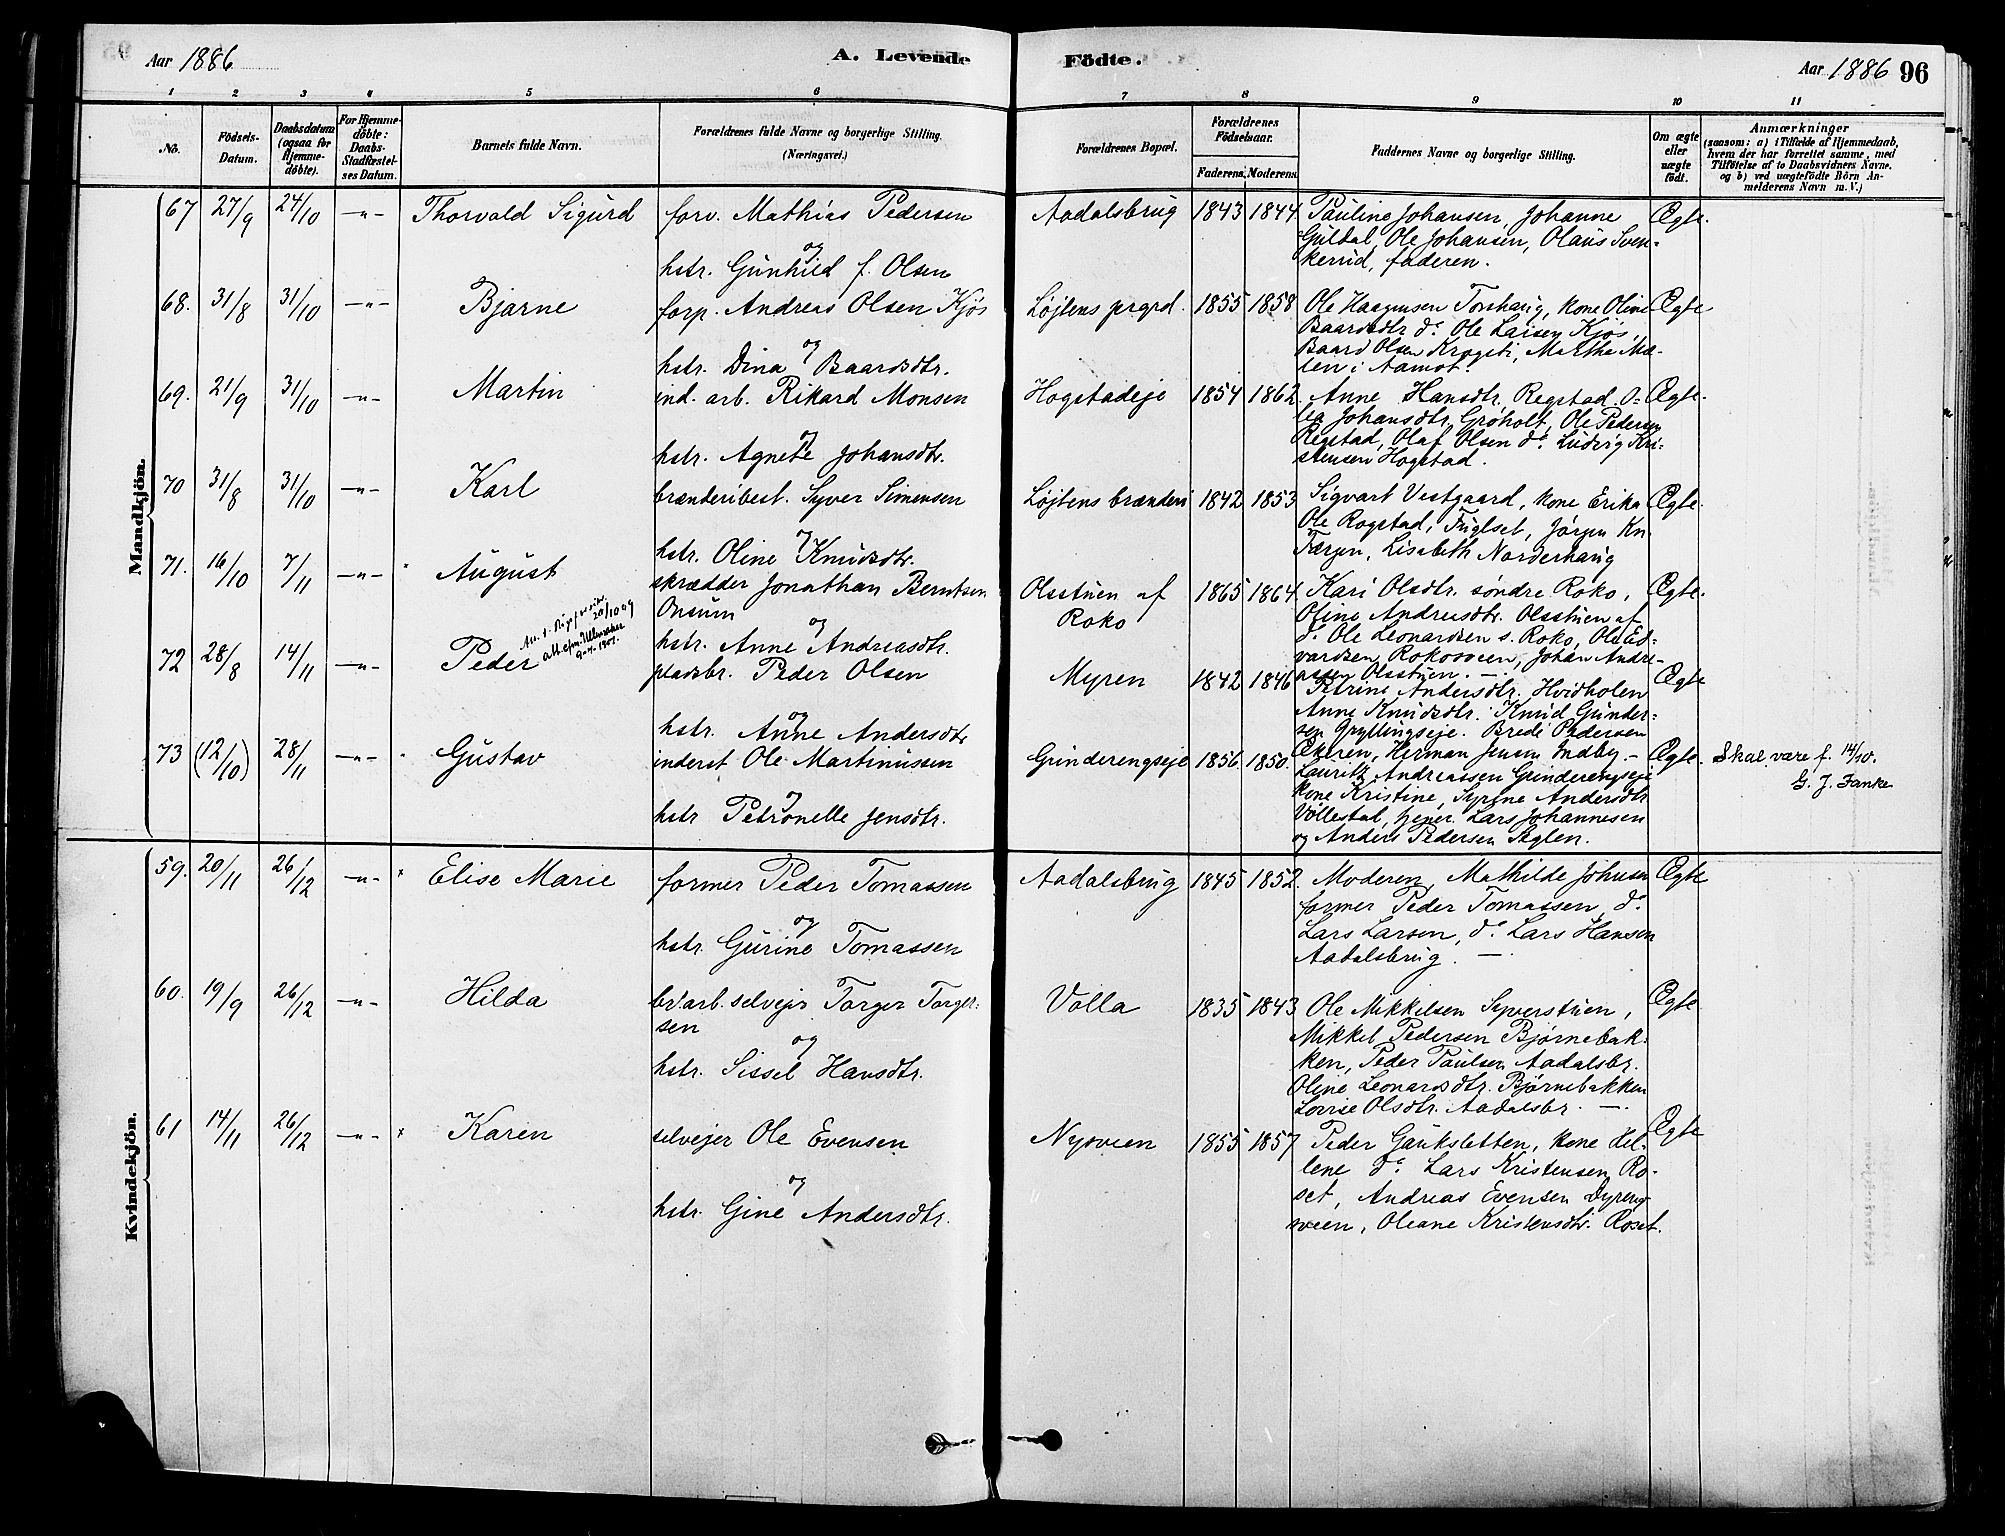 Aar 1886
A. Levende
Födte.
Aar 1886
96
1 2 3 4 5 6 7 8 9 10 11
No.
Födsels-
Datum.
Daabsdatum
(ogsaa for
Hjemme-
döbte).
For Hjemme-
döbte:
Daabs-
Stadfæstel-
ses Datum.
Barnets fulde Navn.
Forældrenes fulde Navne og borgerlige Stilling.
(Næringsvei.)
Forældrenes Bopæl.
Forældrenes
Födselsaar.
Faderens. Moderens.
Faddernes Navne og borgerlige Stilling.
Om ægte
eller
uægte
født.
Anmærkninger
(saasom: a) i Tilfælde af Hjemmedaab,
hvem der har forrettet samme, med
Tilföielse af to Daabsvidners Navne,
og b) ved uægtefödte Börn An-
melderens Navn m. V.)
Mandkjön.
67 27/9 24/10 -"- Thorvald Sigurd
forv. Mathias Pedersen
og
hstr. Gunhild f. Olsen
Aadalsbrug 1843 1844
Pauline Johansen, Johanne
Guldal, Ole Johansen, Olaus Sven-
kerud, faderen.
Ægte.
68. 31/8 31/10 -"- Bjarne
forp. Andreas Olsen Kjøs
og
hstr. Dina Baardsdtr.
Løjtens prgrd. 1855 1858
Ole Haagensen Torshaug, kone Oline
Baardsdtr do. Ole Larsen Kjøs,
Baard Olsen Krogsti, Martha Mæ-
len i Aamot.
Ægte
69. 21/9 31/10 -"- Martin
ind. arb. Rikard Monsen
og
hstr. Agnete Johansdtr.
Hogstadeje 1854 1862
Anne Hansdtr. Regstad, O-
lea Johansdtr. Grøholt, Ole Pedersen
Regstad, Olaf Olsen do. Ludvig Kri-
stensen Hogstad.
Ægte.
70 31/8 31/10 -"- Karl
brænderibest. Syver Simensen
og
hstr. Oline Knudsdtr.
Løjtens brænderi 1842 1853
Sigvart Vestgaard, kone Erika
Ole Rogstad, Fuglset, Jørgen Kn.
Færgen, Lisabeth Norderhaug
Ægte.
71. 16/10 7/11 -"- August
skrædder Jonathan Berntsen
Onsum
og
hstr. Anne Andreasdtr.
Olsstuen af
Roko
1865 1864
Kari Olsdtr. søndre Roko,
Oline Andreasdtr. Olsstuen af
do. Ole Leonardsen s. Roko, Ole Ed-
vardsen Rokosveen, Johan Andre-
assen Olsstuen. —
Ægte.
72 28/8 14/11 -"- Peder
20/10 09
pladsbr. Peder Olsen
og
hstr. Anne Andersdtr
Myren 1842 1846
Petrine Andersdtr. Hvidholen
Anne Knudsdtr. Knud Gunder-
sen Gryllingseje. Brede Pedersen
Ækren, Herman Jensen Indby. —
Ægte
73 (12/10) 28/11 -"- Gustav
inderst Ole Martinussen
og
hstr Petronelle Jensdtr.
Grinderengseje 1856. 1850.
Lauritz Andreassen Grinderengseje
kone Kristine, Syrine Andersdtr
Vollestad, Lars Johannesen
og Anders Pedersen Æglen.
Ægte.
Skal være f. 14/10.
G. J. Fanke
Kvindekjön.
59. 20/11 26/12 -"- x Elise Marie
former Peder Tomassen
og
hstr. Gurine Tomassen
Aadalsbrug 1845 1852.
Moderen, Mathilde Johnsen
former Peder Tomassen, do.
Lars Larsen, do. Lars Hansen
Aadalsbrug. —
Ægte
60. 19/9 26/12 -"- Hilda
br. arb. selvejer Torger Torger-
sen
og
hstr. Sissel Hansdtr.
Volla 1835 1843
Ole Mikkelsen Syverstuen,
Mikkel Pedersen Bjørnebak-
ken, Peder Paulsen Aadalsbr.
Oline Leonardsdtr. Bjørnebakken
Lovise Olsdtr. Aadalsbr. —.
Ægte
61 14/11 26/12 -"- x Karen
selvejer Ole Evensen
og
hstr. Gine Andersdtr.
Nysveen 1855 1857
Peder Gaukstetten, kone Hel-
lene do. Lars Kristensen Ro-
set, Andreas Evensen Dyreng-
sveen, Oleane Kristensdtr. Roset.
Ægte